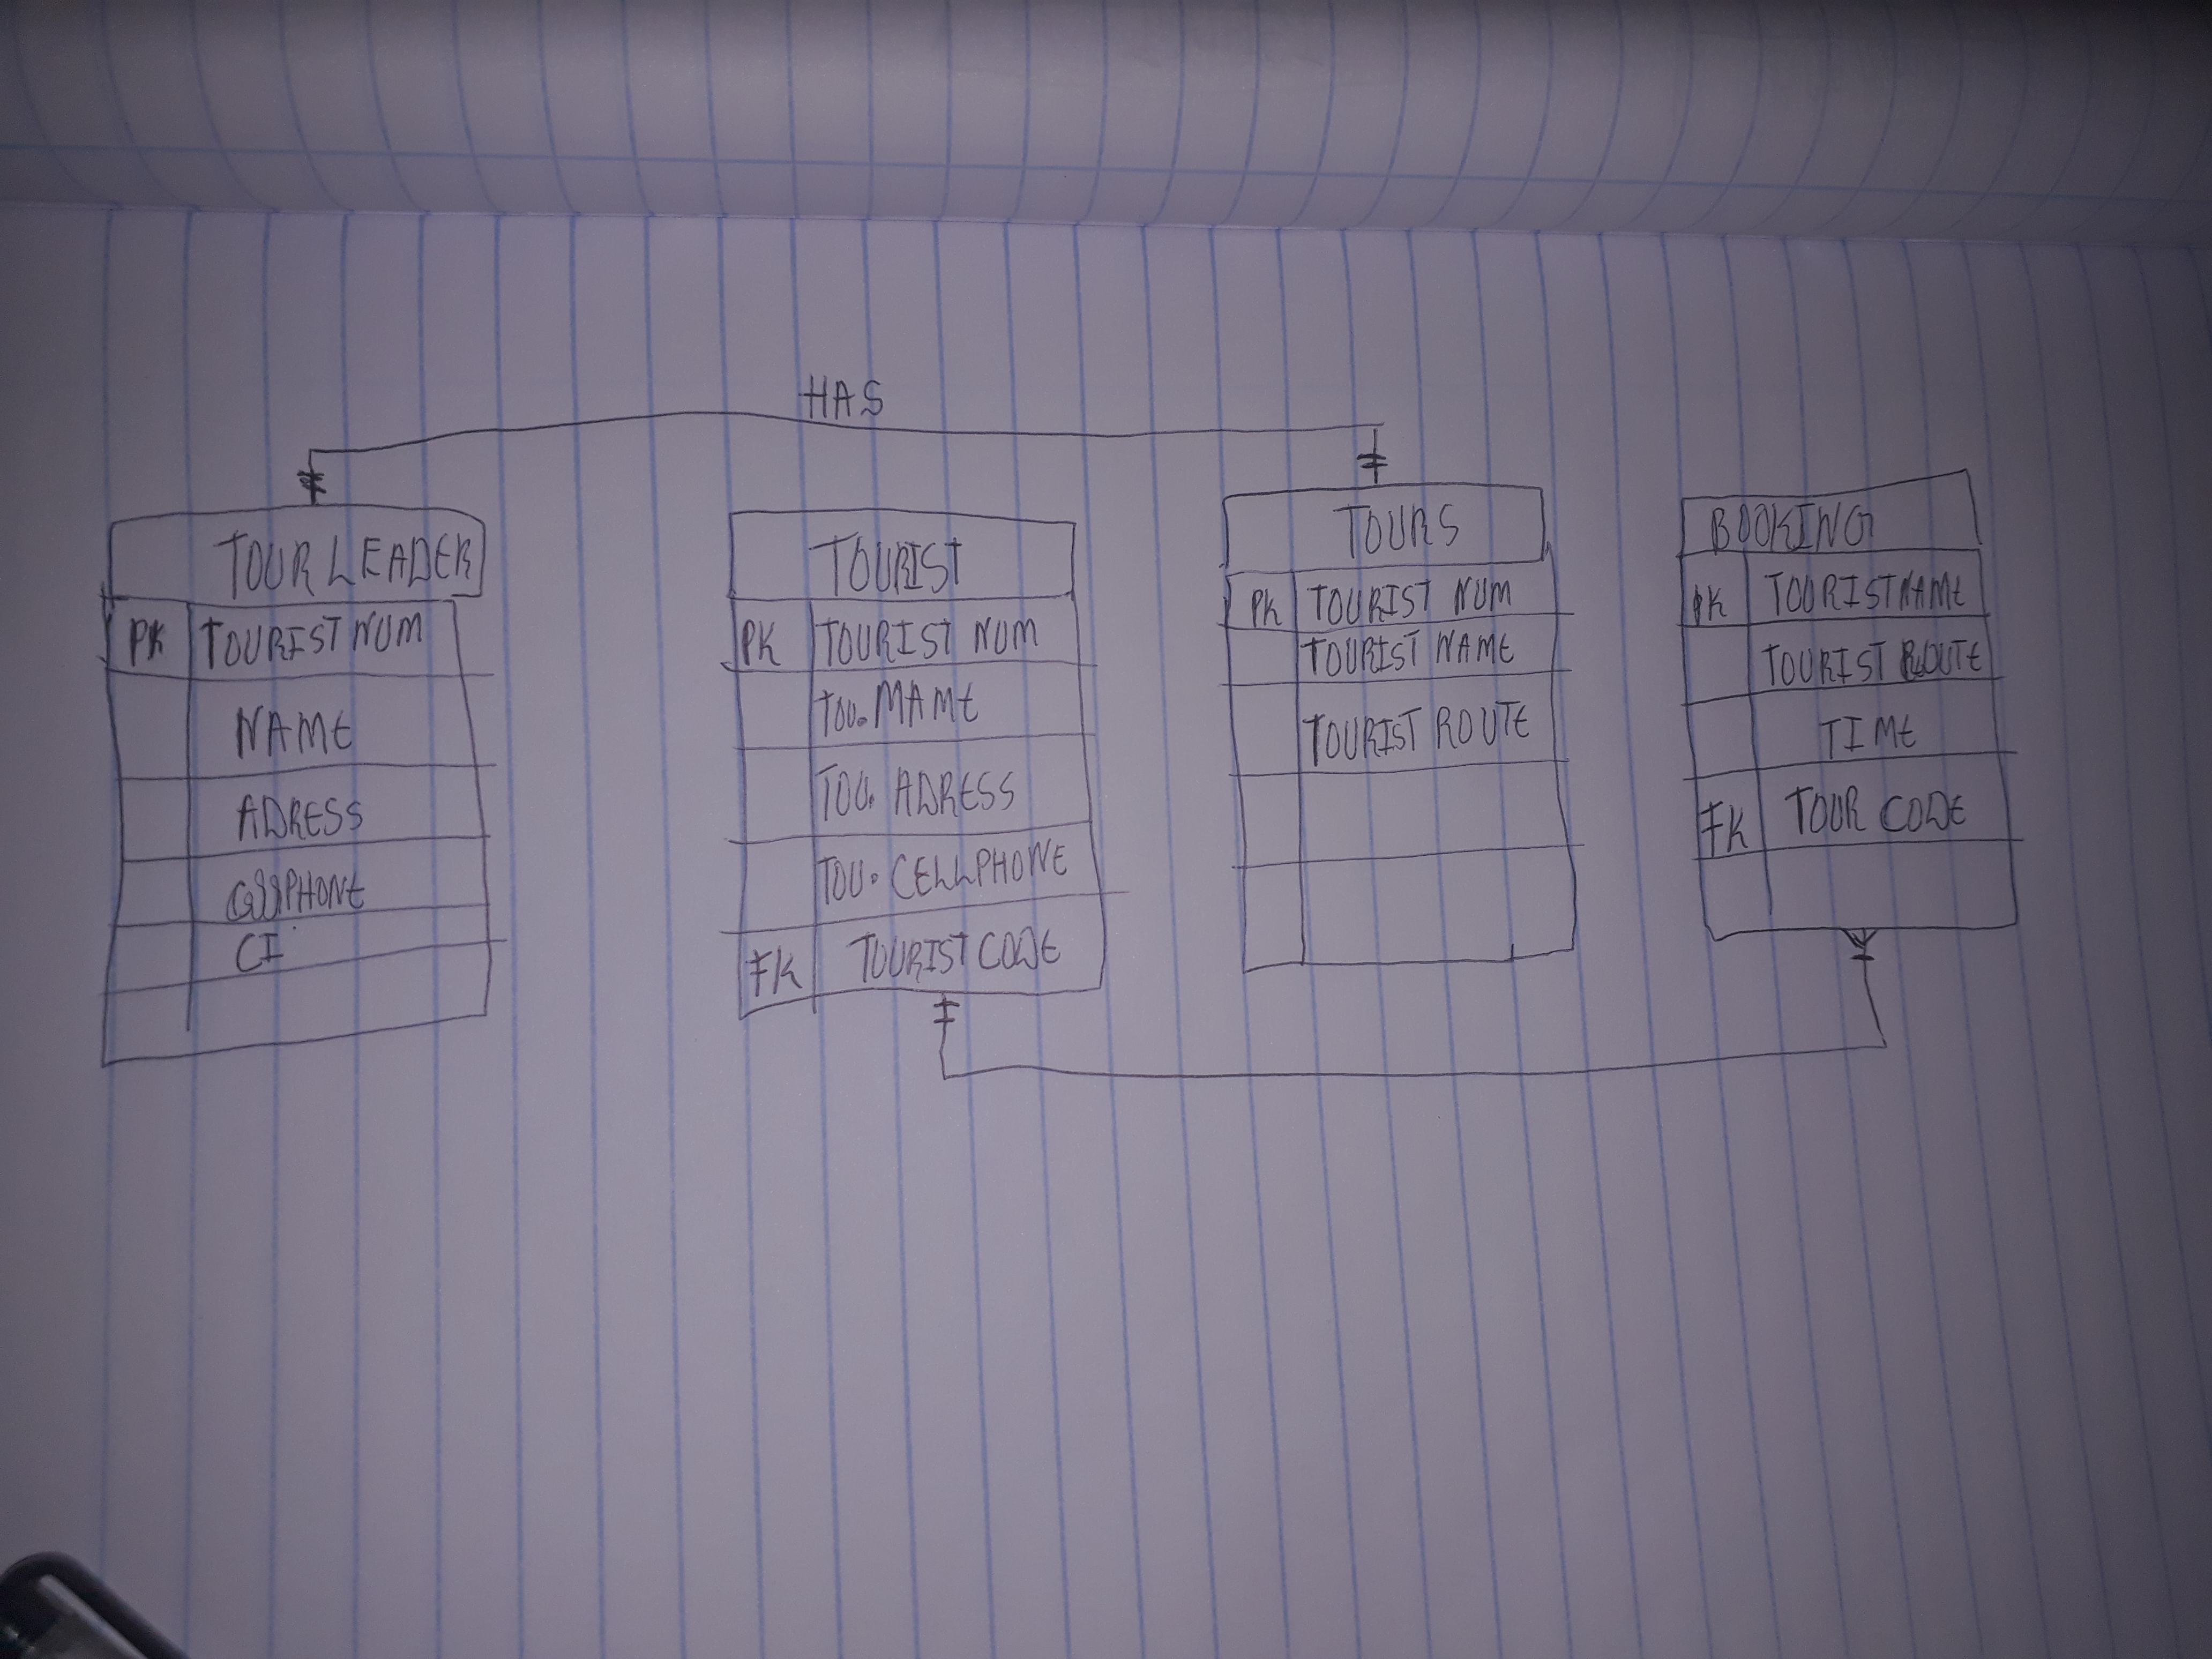 HAS
TOUR LEADER
PK TOURIST NUM
NAME
ADRESS
CELLPHONE
CI
TOURIST
PK TOURIST NUM
TOU. MAME
TOU. ADRESS
TOU. CELLPHONE
FK TOURIST CODE
TOURS
PK TOURIST NUM
TOURIST NAME
TOURIST ROUTE
BOOKING
PK TOURISTNAME
TOURIST ROUTE
TIME
FK TOUR CODE